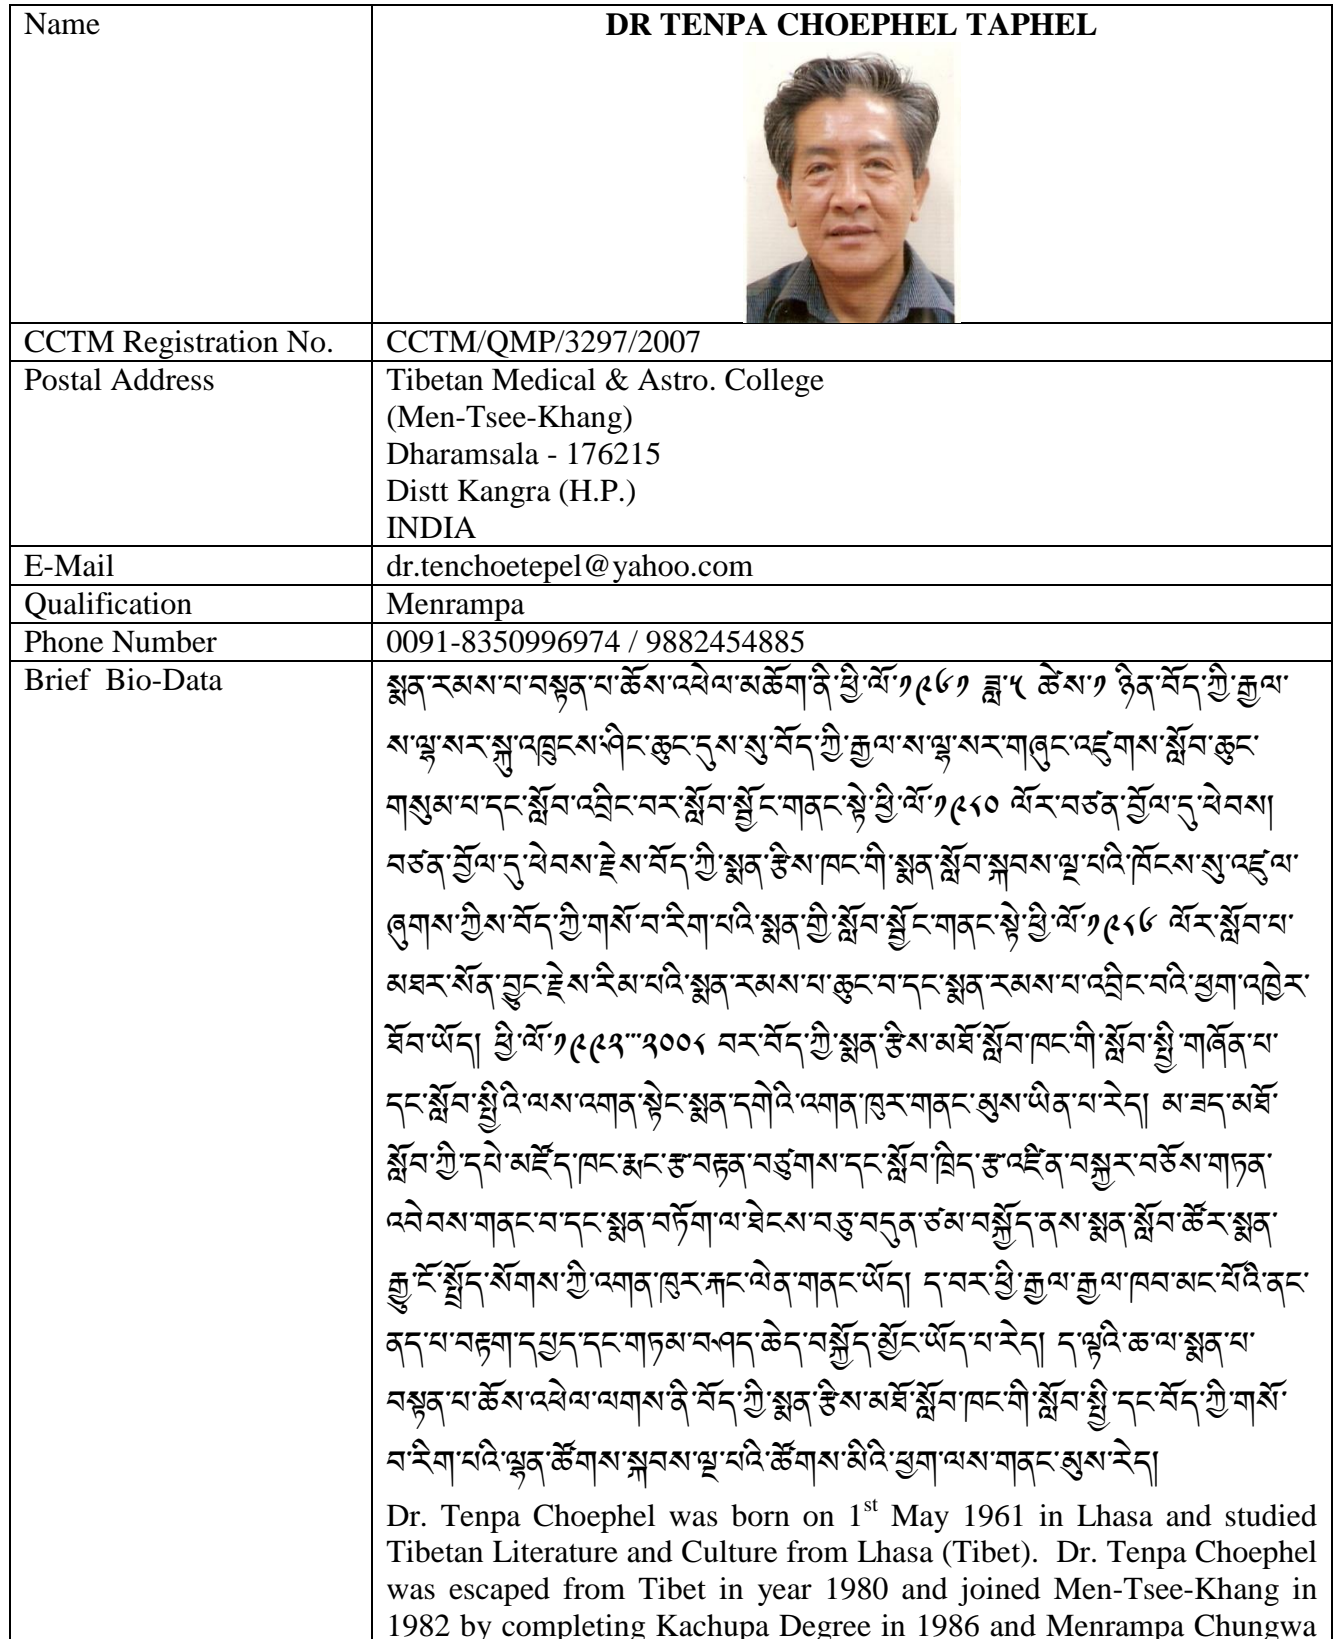 Name
DR TENPA CHOEPHEL TAPHEL
CCTM Registration No.
CCTM/QMP/3297/2007
Postal Address
Tibetan Medical & Astro. College
(Men-Tsee-Khang)
Dharamsala - 176215
Distt Kangra (H.P.)
INDIA
E-Mail
dr.tenchoetepel@yahoo.com
Qualification
Menrampa
Phone Number
0091-8350996974 / 9882454885
Brief Bio-Data
སྨན་རམས་པ་བསྟན་པ་ཆོས་འཕེལ་མཆོག་ནི་ཕྱི་ལོ་༡༩༦༡ ཟླ་༥ ཚེས་༡ ཉིན་བོད་ཀྱི་རྒྱལ་
ས་ལྷ་སར་སྐུ་འཁྲུངས་ཤིང་ཆུང་དུས་སུ་བོད་ཀྱི་རྒྱལ་ས་ལྷ་སར་གཞུང་འཛུགས་སློབ་ཆུང་
གསུམ་པ་དང་སློབ་འབྲིང་བར་སློབ་སྦྱོང་གནང་སྟེ་ཕྱི་ལོ་༡༩༨༠ ལོར་བཙན་བྱོལ་དུ་ཕེབས།
བཙན་བྱོལ་དུ་ཕེབས་རྗེས་བོད་ཀྱི་སྨན་རྩིས་ཁང་གི་སྨན་སློབ་སྐབས་ལྔ་པའི་ཁོངས་སུ་འཛུལ་
ཞུགས་ཀྱིས་བོད་ཀྱི་གསོ་བ་རིག་པའི་སྨན་གྱི་སློབ་སྦྱོང་གནང་སྟེ་ཕྱི་ལོ་༡༩༨༦ ལོར་སློབ་པ་
མཐར་སོན་བྱུང་རྗེས་རིམ་པའི་སྨན་རམས་པ་ཆུང་བ་དང་སྨན་རམས་པ་འབྲིང་བའི་ཕྱག་འཁྱེར་
ཐོབ་ཡོད། ཕྱི་ལོ་༡༩༩༢་་་༢༠༠༨ བར་བོད་ཀྱི་སྨན་རྩིས་མཐོ་སློབ་ཁང་གི་སློབ་སྤྱི་གཞོན་པ་
དང་སློབ་སྤྱིའི་ལས་འགན་སྟེང་སྨན་དགེའི་འགན་ཁུར་གནང་མུས་ཡིན་པ་རེད། མ་ཟད་མཐོ་
སློབ་ཀྱི་དཔེ་མཛོད་ཁང་རྨང་རྩ་བརྟན་བཙུགས་དང་སློབ་ཁྲིད་རྩ་འཛིན་བསྐྱར་བཅོས་གཏན་
འབེབས་གནང་བ་དང་སྨན་བཏོག་ལ་ཐེངས་བཅུ་བདུན་ཙམ་བསྐྱོད་ནས་སྨན་སློབ་ཚོར་སྨན་
རྒྱུ་ངོ་སྤྲོད་སོགས་ཀྱི་འགན་ཁུར་རྐང་ལེན་གནང་ཡོད། ད་བར་ཕྱི་རྒྱལ་རྒྱལ་ཁབ་མང་པོའི་ནང་
ནད་པ་བརྟག་དཔྱད་དང་གཏམ་བཤད་ཆེད་བསྐྱོད་མྱོང་ཡོད་པ་རེད། ད་ལྟའི་ཆ་ལ་སྨན་པ་
བསྟན་པ་ཆོས་འཕེལ་ལགས་ནི་བོད་ཀྱི་སྨན་རྩིས་མཐོ་སློབ་ཁང་གི་སློབ་སྤྱི་དང་བོད་ཀྱི་གསོ་
བ་རིག་པའི་ལྷན་ཚོགས་སྐབས་ལྔ་པའི་ཚོགས་མིའི་ཕྱག་ལས་གནང་མུས་རེད།
Dr. Tenpa Choephel was born on 1st May 1961 in Lhasa and studied
Tibetan Literature and Culture from Lhasa (Tibet). Dr. Tenpa Choephel
was escaped from Tibet in year 1980 and joined Men-Tsee-Khang in
1982 by completing Kachupa Degree in 1986 and Menrampa Chungwa